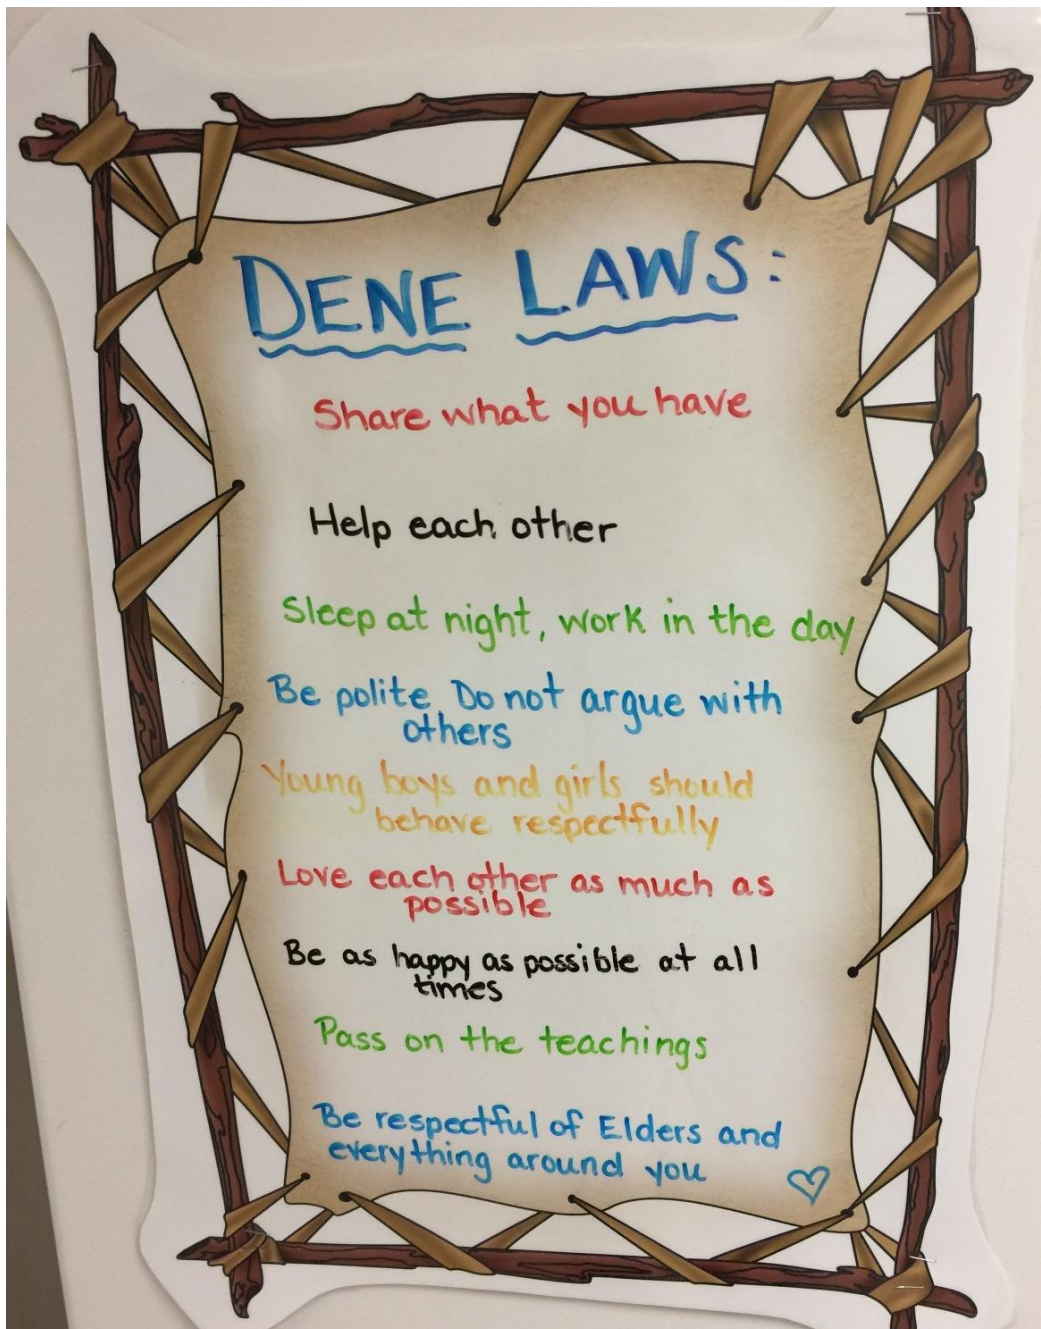 DENE LAWS:
Share what you have
Help each other
Sleep at night, work in the day
Be polite. Do not argue with
others
Young boys and girls should
behave respectfully
Love each other as much as
possible
Be as happy as possible at all
times
Pass on the teachings
Be respectful of Elders and
everything around you